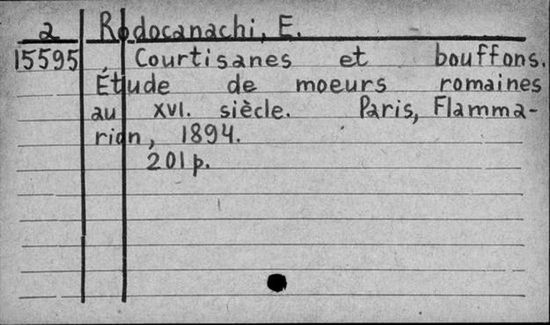 a Rodocanachi, E.
15595 Courtisanes et bouffons.
Étude de moeurs romaines
au XVI. siècle. Paris, Flamma-
rion, 1894.
201 p.